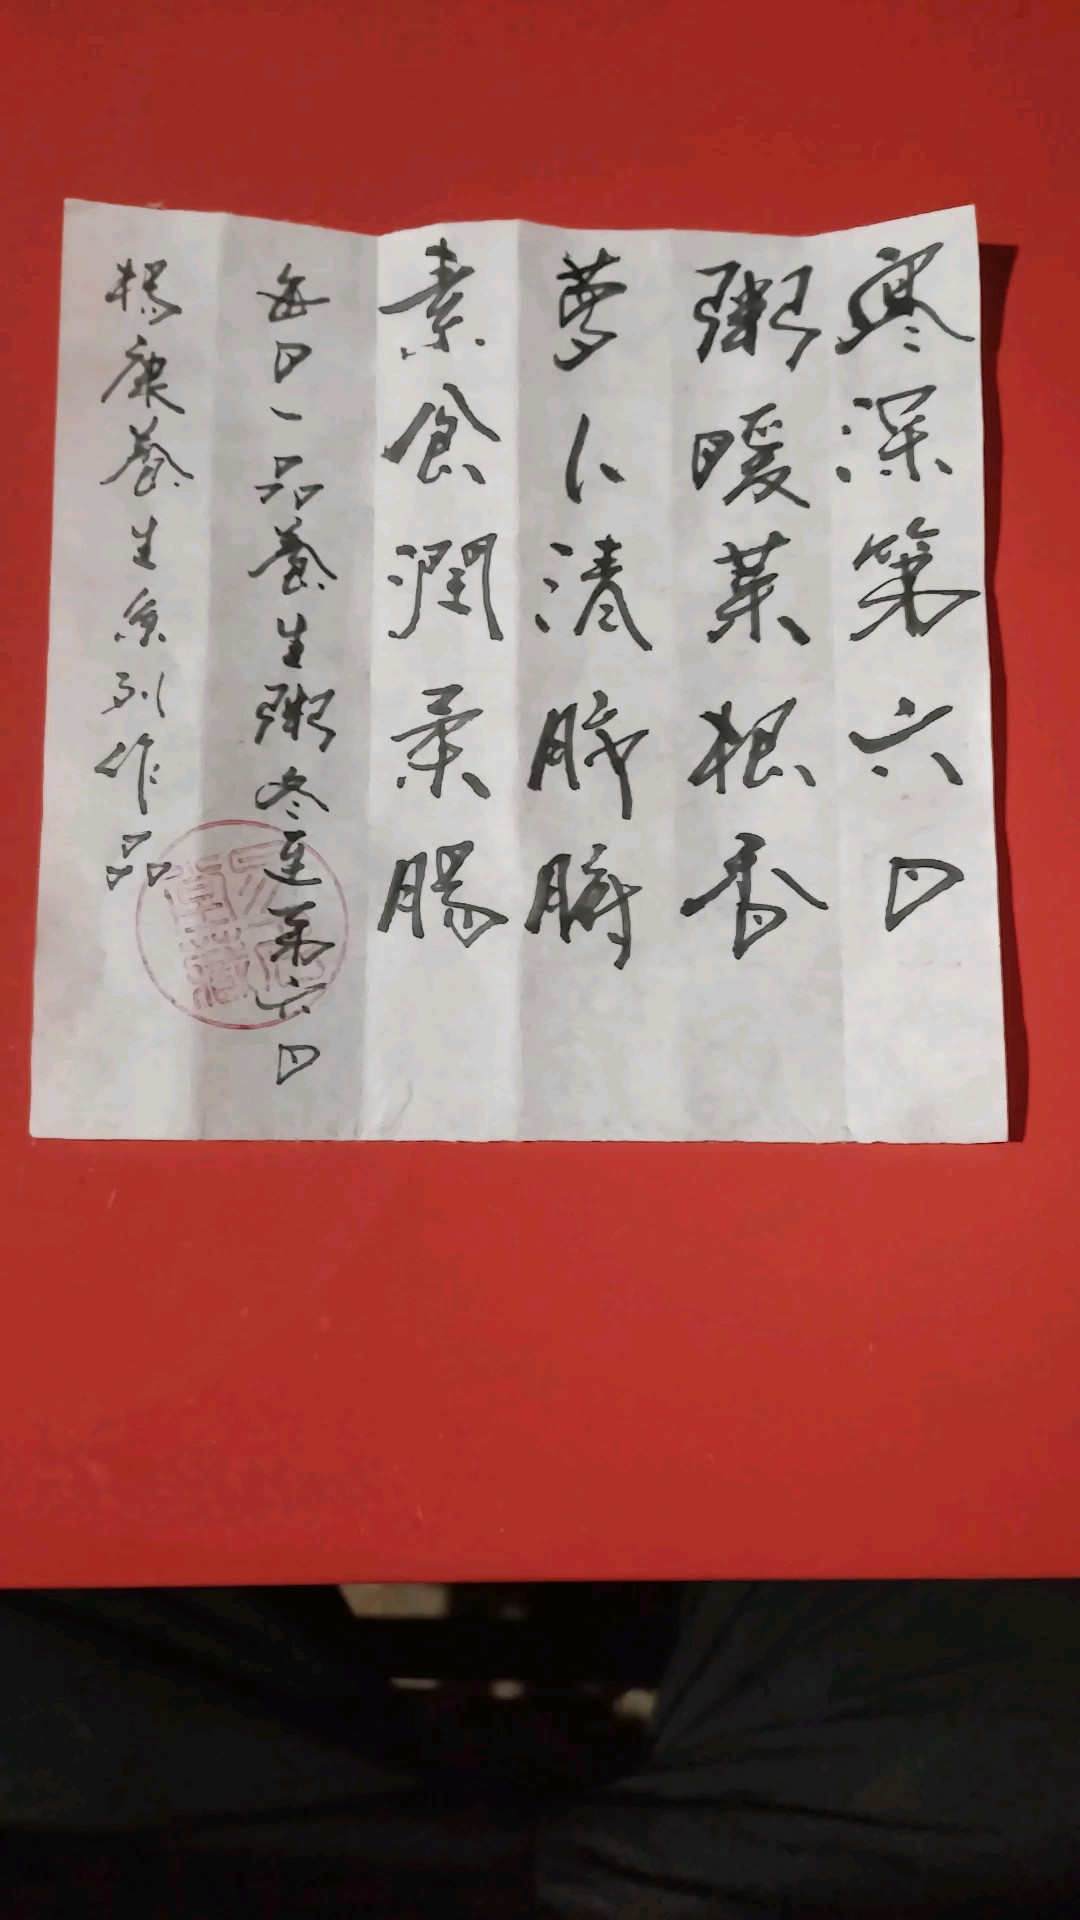 寒深第六日
粥暖菜根香
萝卜清臟腑
素食潤柔腸
每日一品養生粥冬至第六日
楊康養生系列作品